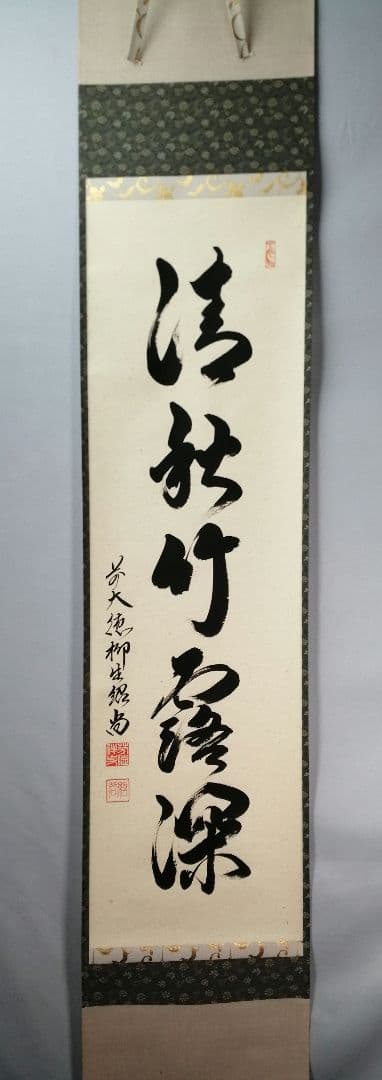 清秋竹露深
前大徳柳生紹尚